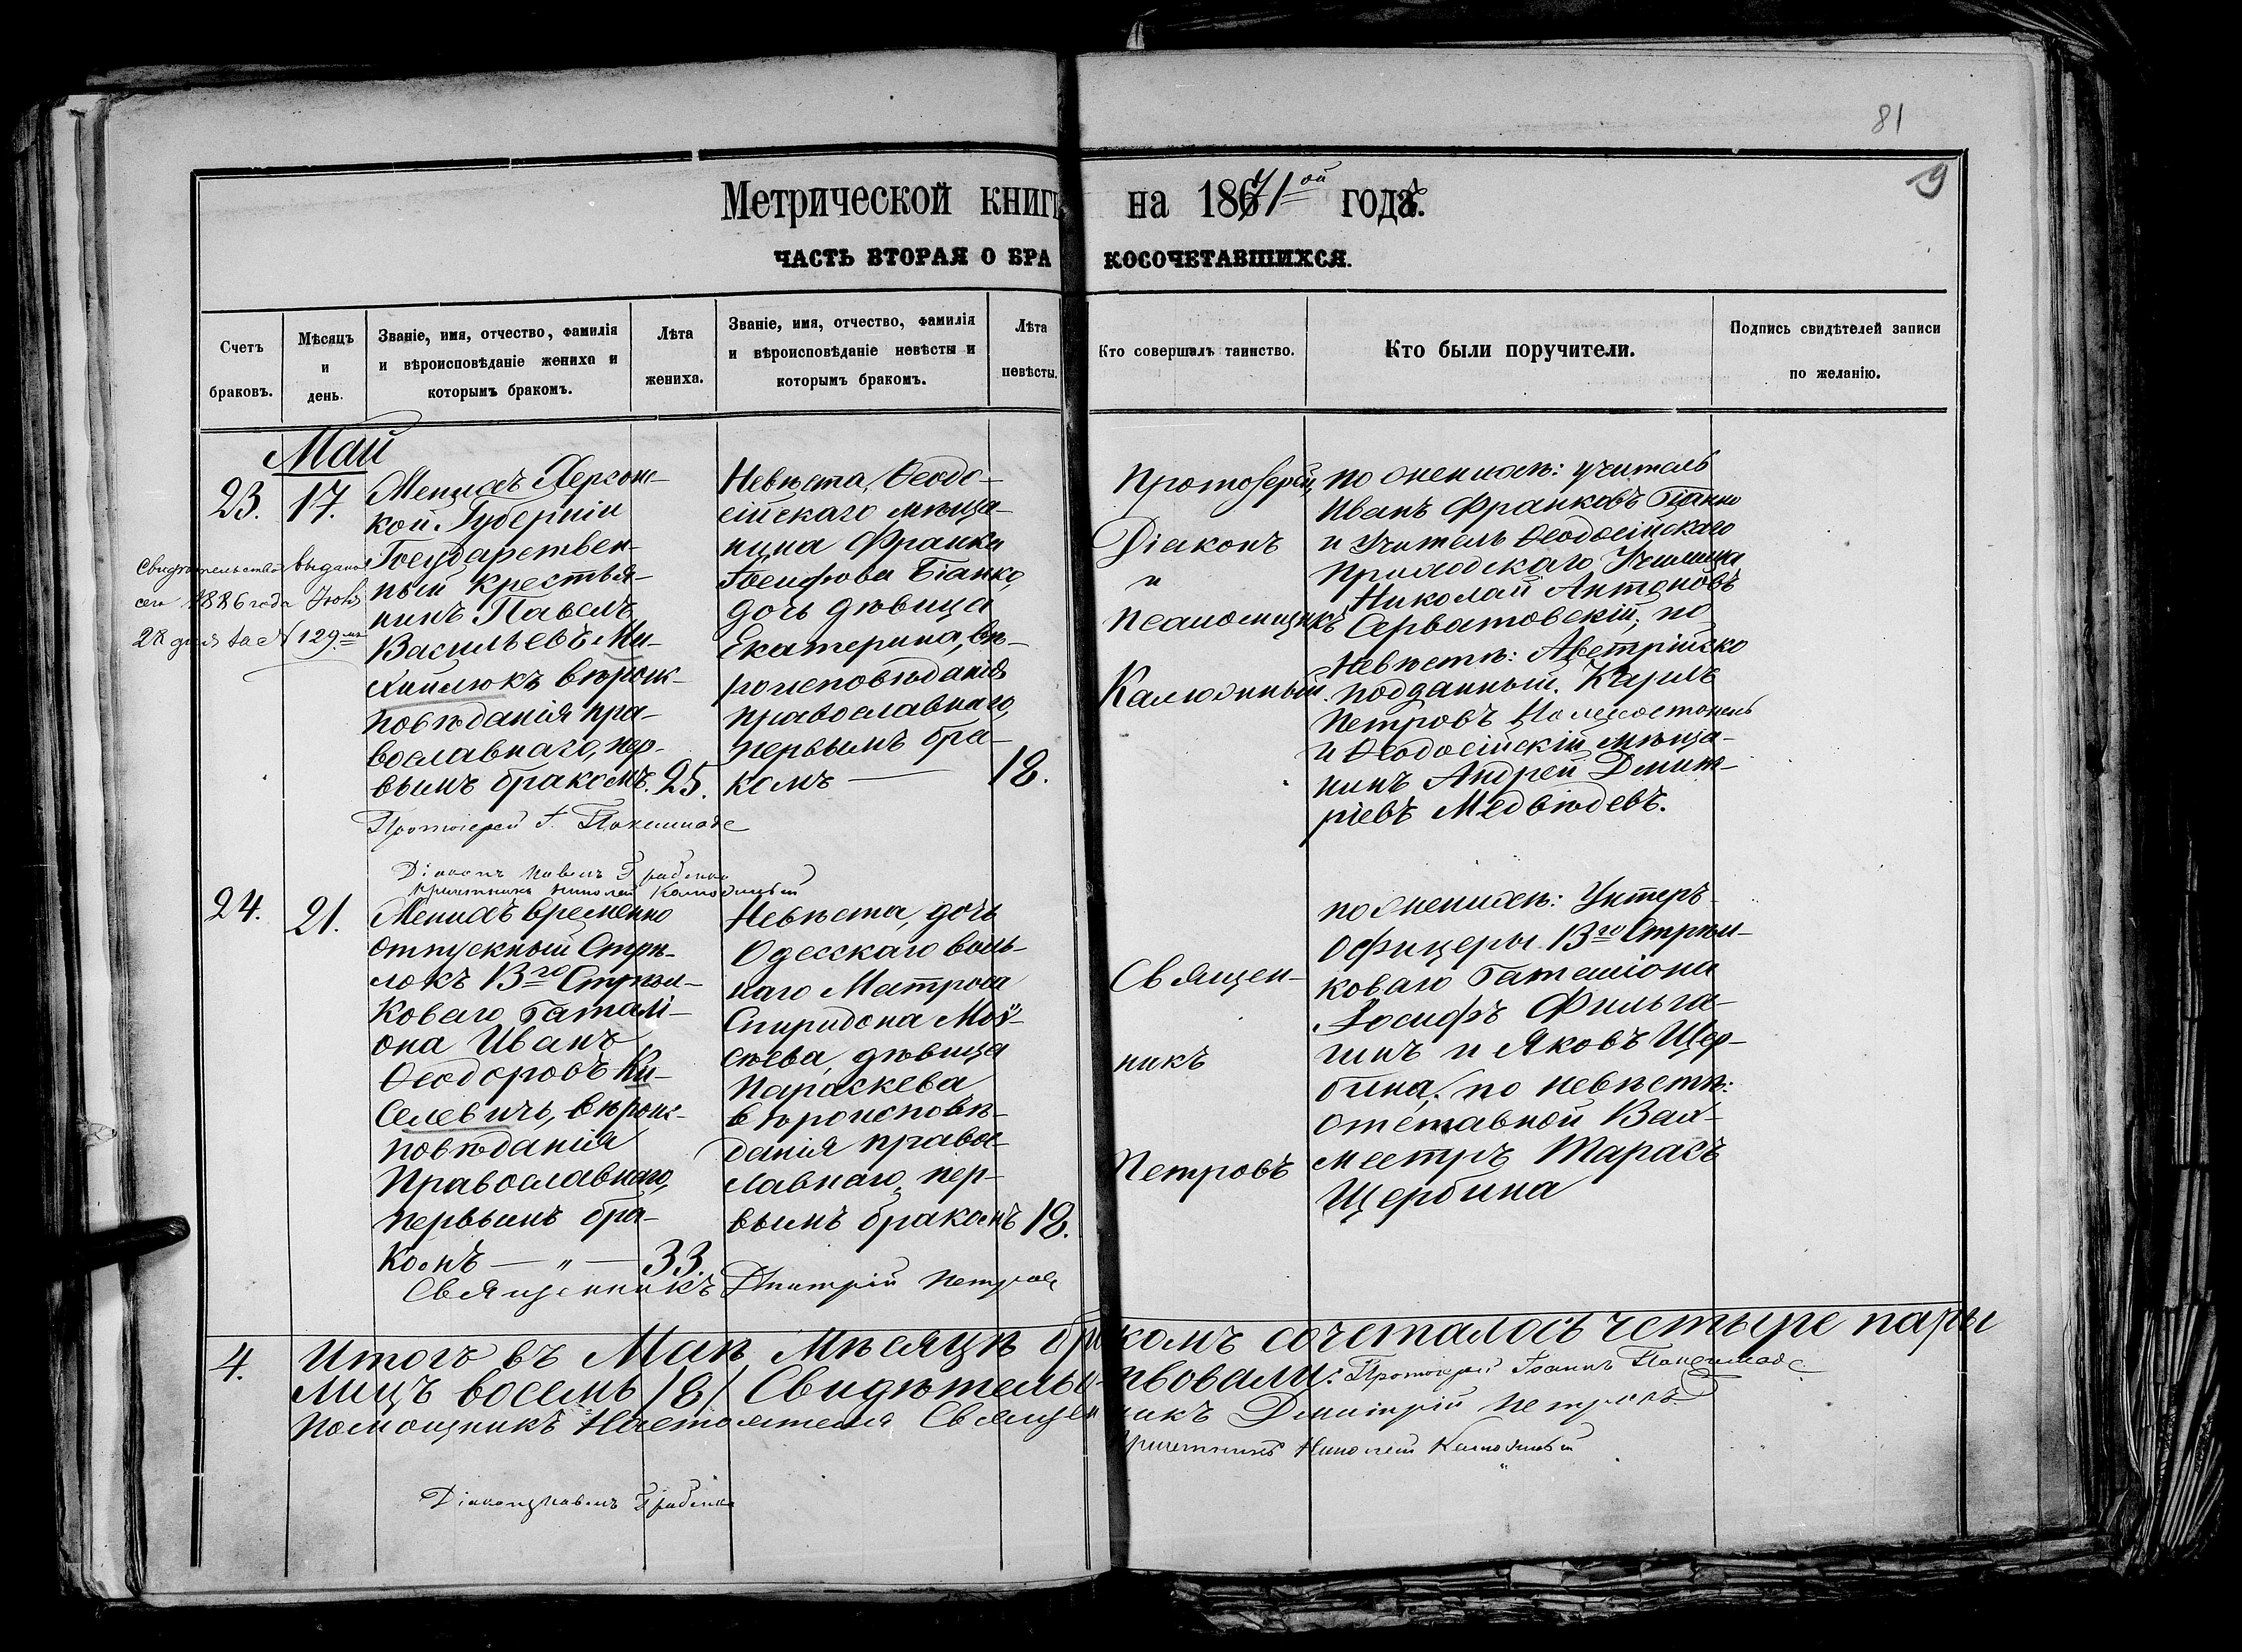 81
9
Метрической книги на 1871ой годъ.
ЧАСТЬ ВТОРАЯ О БРАКОСОЧЕТАВШИХСЯ.
Счетъ браковъ.
Мѣсяцъ и день.
Званіе, имя, отчество, фамилія и вѣроисповѣданіе жениха и которымъ бракомъ.
Лѣта жениха.
Званіе, имя, отчество, фамилія и вѣроисповѣданіе невѣсты и которымъ бракомъ.
Лѣта невѣсты.
Кто совершалъ таинство.
Кто были поручители.
Подпись свидѣтелей записи по желанію.
Май
23.
17.
Свидѣтельство выдано
сего 1886 года Іюля
28 дня за № 129мъ
Женихъ Херсонс-
кой Губерніи
Государствен-
ный крестья-
нинъ Павелъ
Васильевъ Ми-
хайлюкъ вѣроис-
повѣданія пра-
вославнаго, пер-
вымъ бракомъ.
25.
Невѣста, Ѳеодо-
сійскаго мѣща-
нина Франка
Іосифова Біанко,
дочь дѣвица
Екатерина, вѣ-
роисповѣданія
православнаго,
первымъ бра-
комъ
18.
Протоіерей,
Діаконъ
и
псаломщикъ
Калюжный.
по женихѣ: учитель
Иванъ Франковъ Біанко
и Учитель Ѳеодосійскаго
приходскаго Училища
Николай Антоновъ
Серватовскій; по
невѣстѣ: Австрійско
подданный Карлъ
Петровъ
и Ѳеодосійскій мѣща-
нинъ Андрей Дмит-
ріевъ Медвѣдевъ.
Протоіерей І.
Діаконъ Павелъ
Причетникъ Николай Калюжный
24.
21.
Женихъ временно
отпускный Стрѣ-
локъ 13го Стрѣл-
коваго Баталі-
она Иванъ
Ѳеодоровъ Ки-
селевичъ, вѣроис-
повѣданія
Православнаго,
первымъ бра-
комъ — " —
33.
Невѣста, дочь
Одесскаго воль-
наго Матроса
Спиридона Мой-
сѣева, дѣвица
Параскева
вѣроисповѣ-
данія правос-
лавнаго, пер-
вымъ бракомъ
18.
Священ-
никъ
Петровъ
по женихѣ: Унтеръ-
офицеры 13го Стрѣл-
коваго Баталіона
Іосифъ
и Яковъ Щер-
бина; по невѣстѣ:
отставной Вах-
местръ Тарасъ
Щербина
Священникъ Дмитрій Петровъ
4.
Итого въ Маѣ Мѣсяцѣ бракомъ сочеталось четыре пары
лицъ восемь /8/ Свидѣтельствовали: Протоіерей Іоаннъ
Помощникъ Настоятеля Священникъ Дмитрій Петровъ
Причетникъ Николай Калюжный
Діаконъ Павелъ